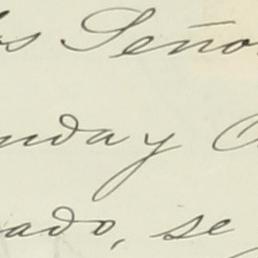 os Seño
nda y C
ado, se